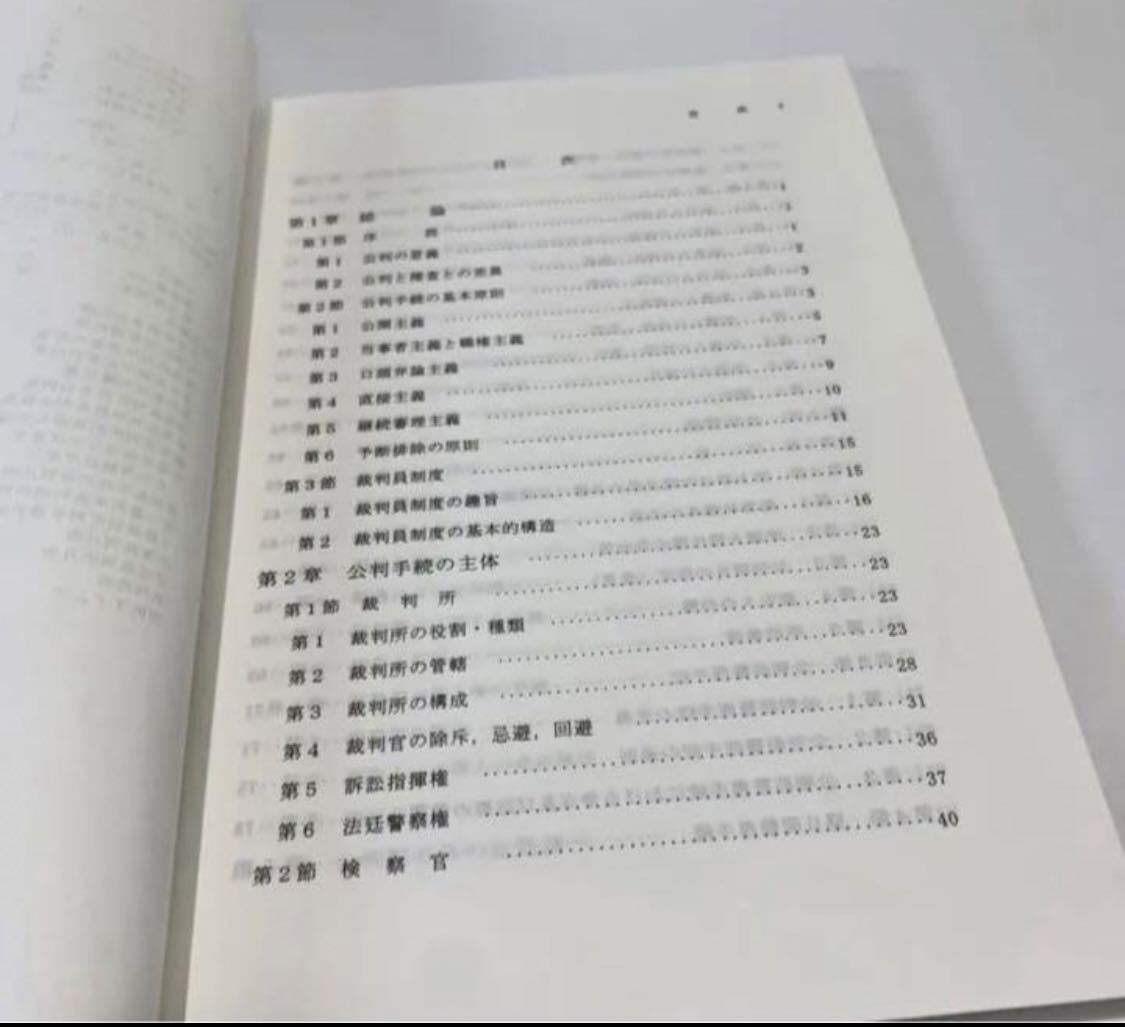 目次
第1章 総論 1
第1節 序説 1
第1 公判の意義 1
第2 公判と捜査との差異 2
第2節 公判手続の基本原則 3
第1 公開主義 3
第2 当事者主義と職権主義 5
第3 口頭弁論主義 7
第4 直接主義 9
第5 継続審理主義 10
第6 予断排除の原則 11
第3節 裁判員制度 15
第1 裁判員制度の趣旨 15
第2 裁判員制度の基本的構造 16
第2章 公判手続の主体 23
第1節 裁判所 23
第1 裁判所の役割・種類 23
第2 裁判所の管轄 23
第3 裁判所の構成 28
第4 裁判官の除斥，忌避，回避 31
第5 訴訟指揮権 36
第6 法廷警察権 37
第2節 検察官 40